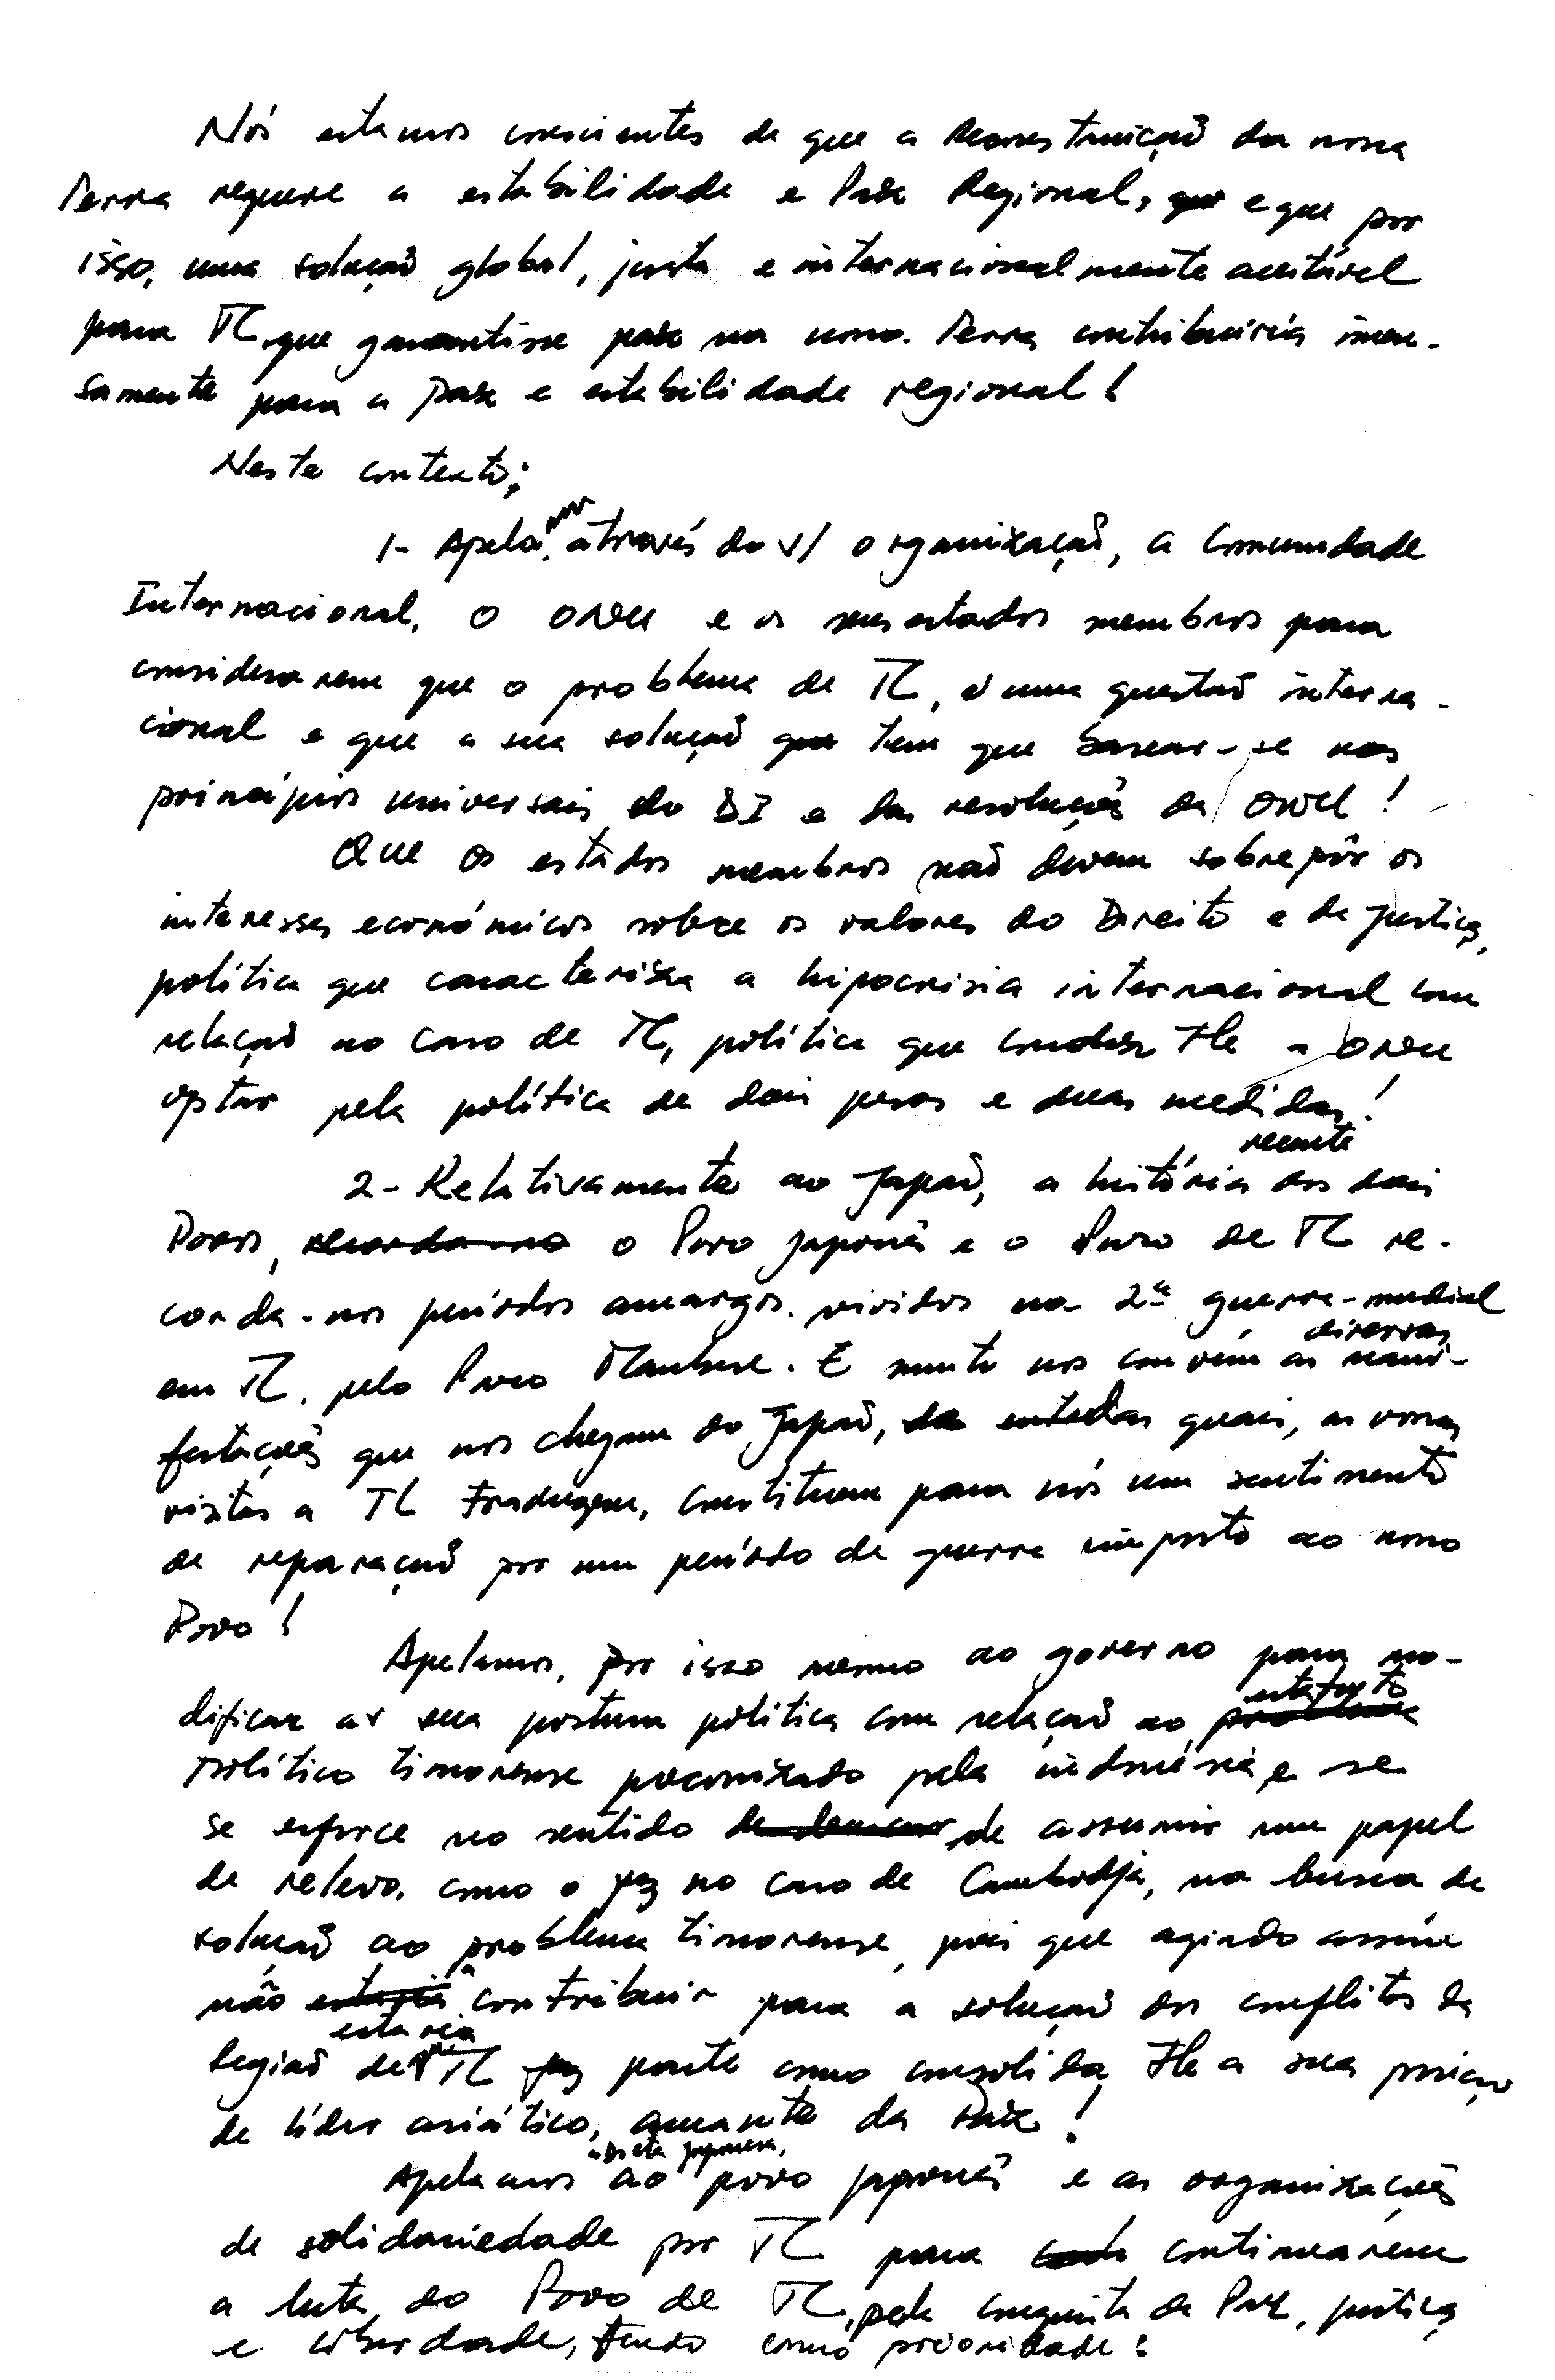 Nós estamos conscientes de que a Reconstruiçaõ da nossa
Terra requere a estabilidade e Paz Regional, que e que por
isso, uma soluçaõ global, justa e internacionalmente aceitável
para TL que garantisse paz na nossa Terra contribuiria imen-
samente para a Paz e estabilidade regional!
Neste contexto;
1- Apelamos, através da V/ organizaçaõ, a Comunidade
Internacional, o ONU e os seus estados membros para
considerarem que o problema de TL, é uma questaõ interna-
cional e que a sua soluçaõ que tem que basear-se nos
princípios universais do DI e das resoluçoẽs da ONU!
Que os estados membros naõ devem sobrepôr os
interesses económicos sobre os valores do Direito e da Justiça,
política que caracteriza a hipocrisia internacional com
relaçaõ ao caso de TL, política que conduz-lhe a ONU
optar pela política de dois pesos e duas medidas!
2- Relativamente ao Japaõ, a história recente dos dois
Povos, recorda-nos o Povo Japonês e o Povo de TL re-
corda-nos períodos amargos vividos na 2ª guerra-mundial
em TL, pelo Povo Maubere. E muito nos convém as diversas mani-
festaçoẽs que nos chegam do Japaõ, das quais, as vossas
visitas a TL traduzem, constituem para nós um sentimento
de reparaçaõ por um período de guerra imposto ao nosso
Povo!
Apelamos, por isso mesmo ao governo para mo-
dificar a sua postura política com relaçaõ ao problema estatuto
político timorense preconizado pela indonésia e se
se esforce no sentido de assumir um papel
de relevo, como o fez no caso de Cambodja, na busca de
soluçaõ ao problema timorense, pois que agindo assim
não estaria a contribuir para a soluçaõ dos conflitos da
Regiaõ de que TL faz parte como consolida-lhe a sua posiçaõ
de líder asiático, amante da Paz!
Apelamos a Dieta japonesa, ao povo japonês e as organizaçoẽs
de solidariedade por TL para continuarem
a luta do Povo de TL, pela conquista da Paz, justiça
e liberdade, tendo como prioridade: